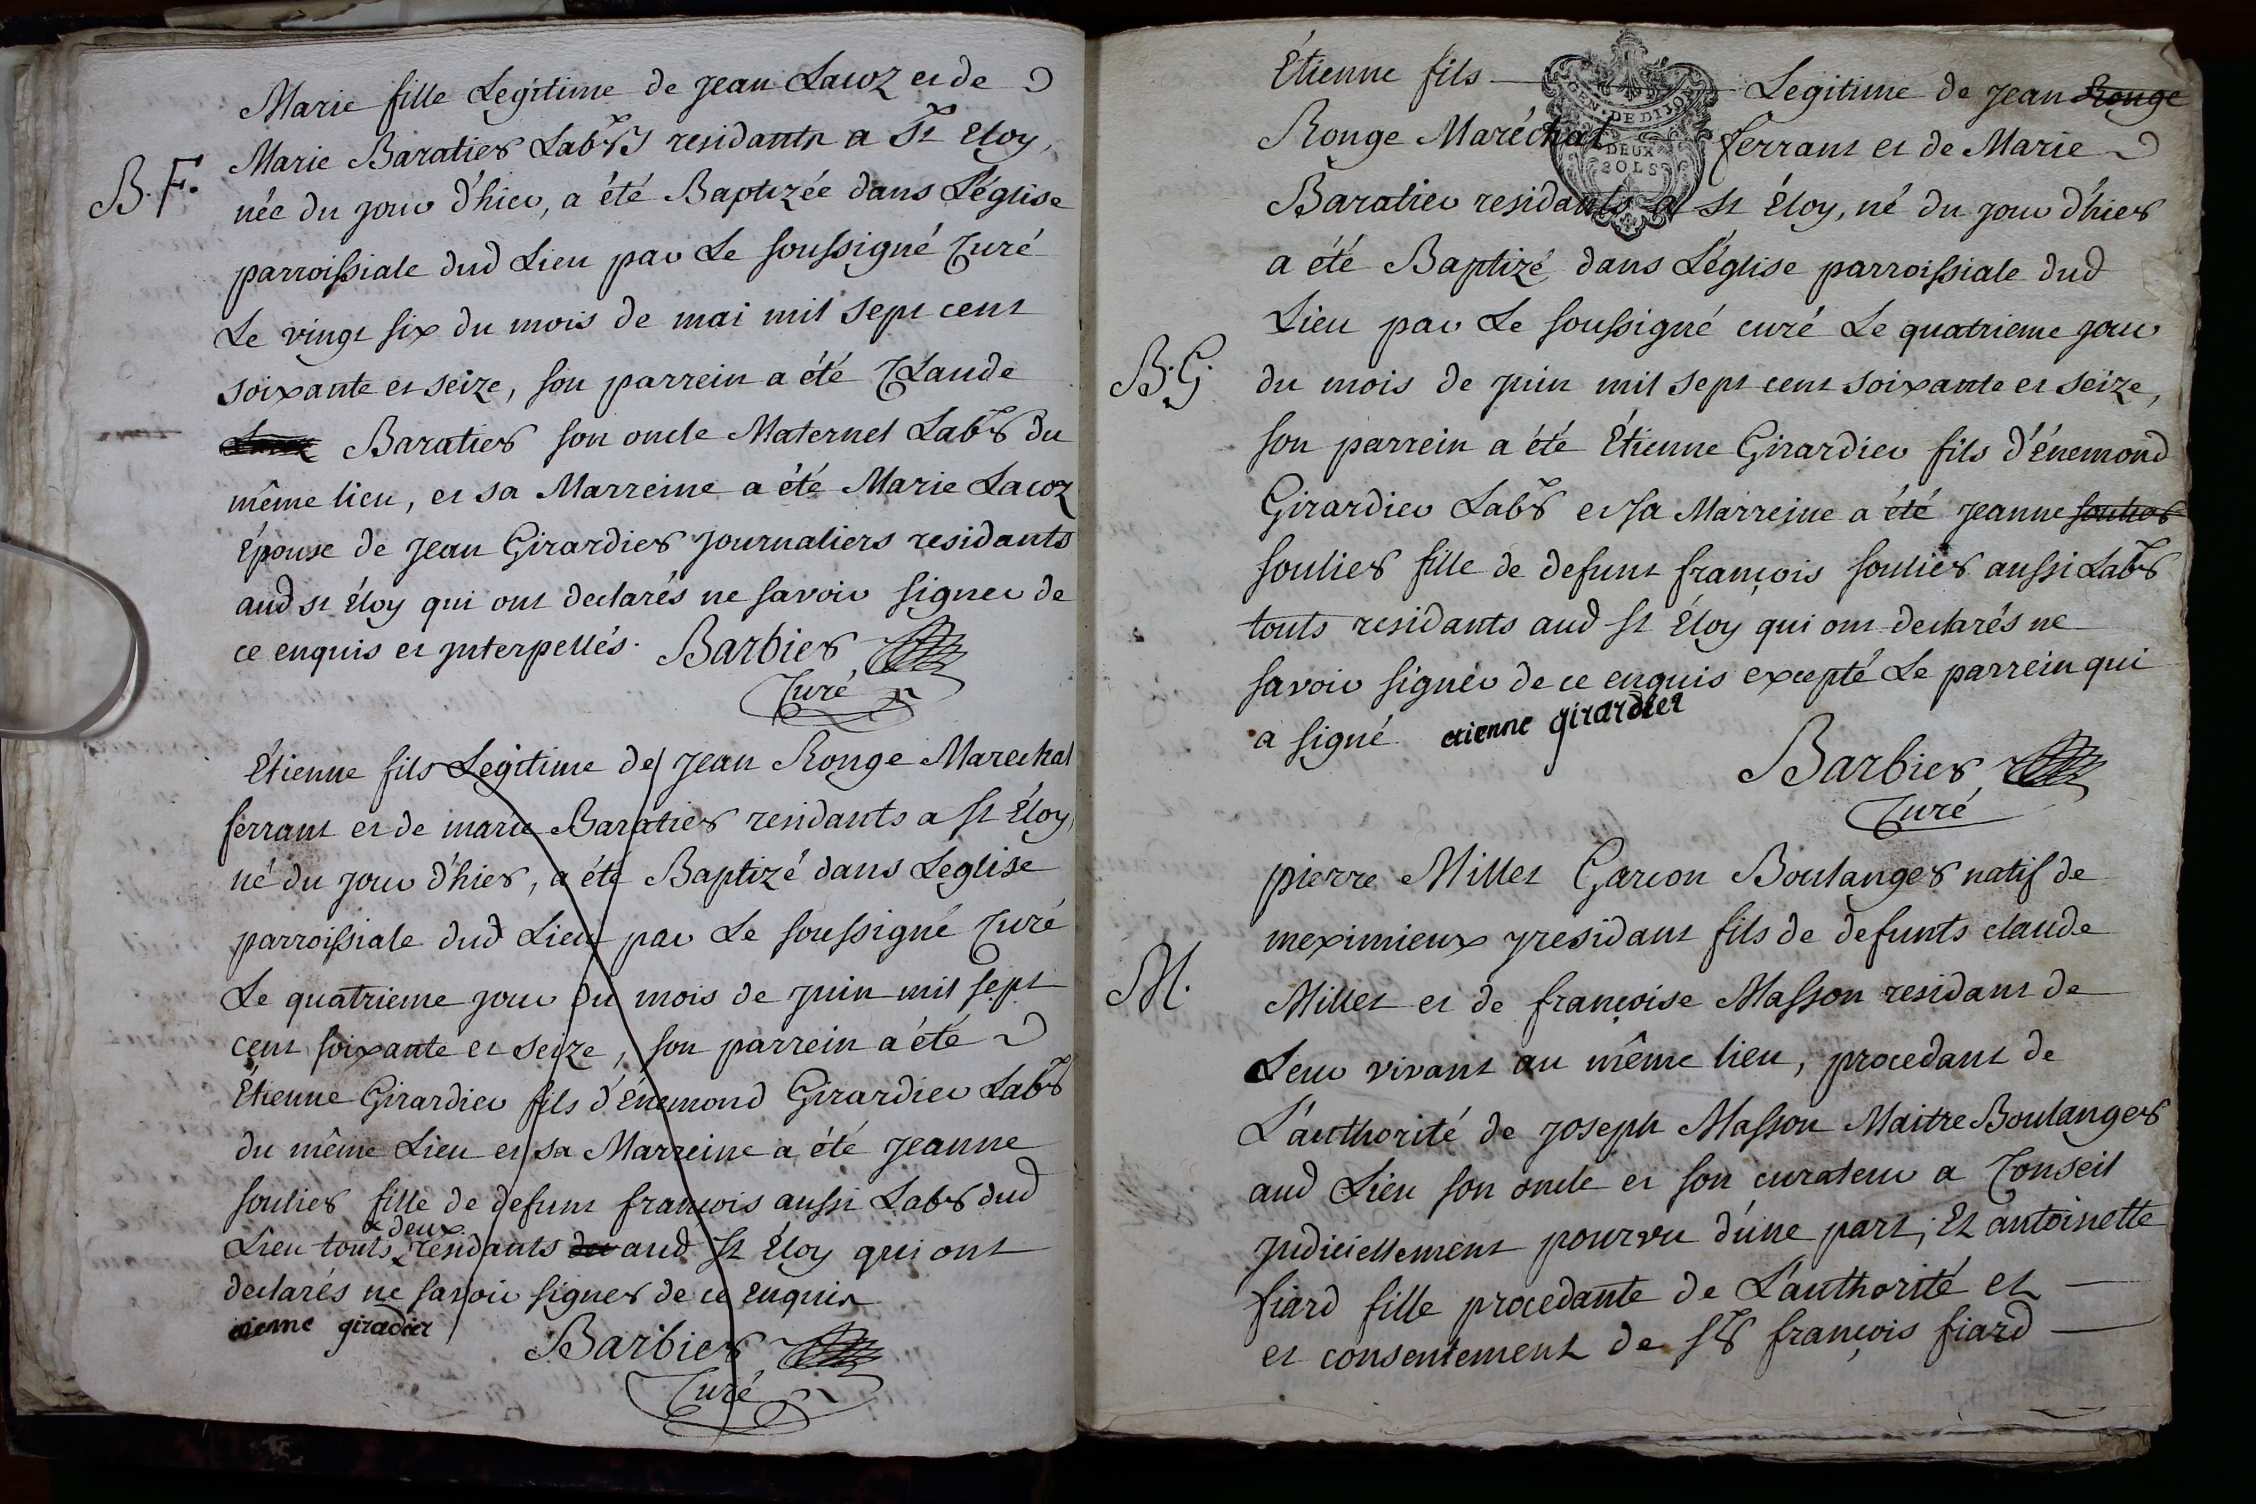 Marie fille Legitime de jean Lacoz et de
Marie Baratier Labrs residants a St Eloy,
B.F.
née du jour d'hier, a été Baptizée dans L'église
parroissiale dud Lieu par Le soussigné Curé
Le vingt six du mois de mai mil sept cent
soixante et seize, son parrein a été Claude
Baratier son oncle Maternel Labr du
même lieu, et sa Marreine a été Marie Lacoz
Épouse de jean Girardier journaliers residants
aud st Éloy qui ont declarés ne savoir signer de
ce enquis et jnterpellés. Barbier
Curé
Étienne fils Legitime de jean Ronge Marechal
ferrant et de marie Baratier residants a st Éloy,
né du jour d'hier, a été Baptizé dans Leglise
parroissiale dud Lieu par Le soussigné Curé
Le quatrieme jour du mois de juin mil sept
cent soixante et seize, son parrein a été
Étienne Girardier fils d'Énemond Girardier Labr
du même Lieu et sa Marreine a été jeanne
soulier fille de defunt françois aussi Labr dud
deux
Lieu touts residants du aud st Éloy qui ont
declarés ne savoir signer de ce enquis
etienne giradier
Barbier
Curé
Étienne fils Legitime de jean Ronge
GEN. DE DIJON
DEUX
SOLS
Ronge Maréchal ferrant et de Marie
Baratier residants a st Éloy, né du jour d'hier
a été Baptizé dans L'église parroissiale dud
Lieu par Le soussigné curé Le quatrieme jour
B.G.
du mois de juin mil sept cent soixante et seize,
son parrein a été Étienne Girardier fils d'énemond
Girardier Labr et sa Marreine a été jeanne soulier
soulier fille de defunt françois soulier aussi Labr
touts residants aud st Éloy qui ont declarés ne
savoir signer de ce enquis excepté Le parrein qui
a signé etienne girardier
Barbier
Curé
pierre Millet Garcon Boulanger natif de
meximieux y residant fils de defunts claude
M.
Millet et de françoise Masson residant de
Leur vivant au même lieu, procedant de
L'authorité de joseph Masson Maitre Boulanger
aud Lieu son oncle et son curateur a Conseil
judiciellement pourvu d'une part, Et antoinette
fiard fille procedante de L'authorité et
et consentement de sr françois fiard